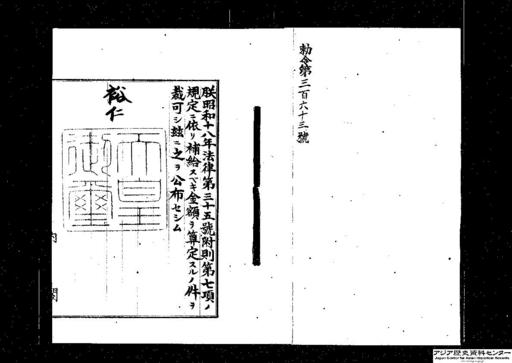 勅令第三百六十三號
朕昭和十八年法律第三十五號附則第七項ノ
規定ニ依リ補給スベキ金額ヲ算定スルノ件ヲ
裁可シ玆ニ之ヲ公布セシム
裕仁
天皇
御璽
内閣
アジア歴史資料センター
Japan Center for Asian Historical Records